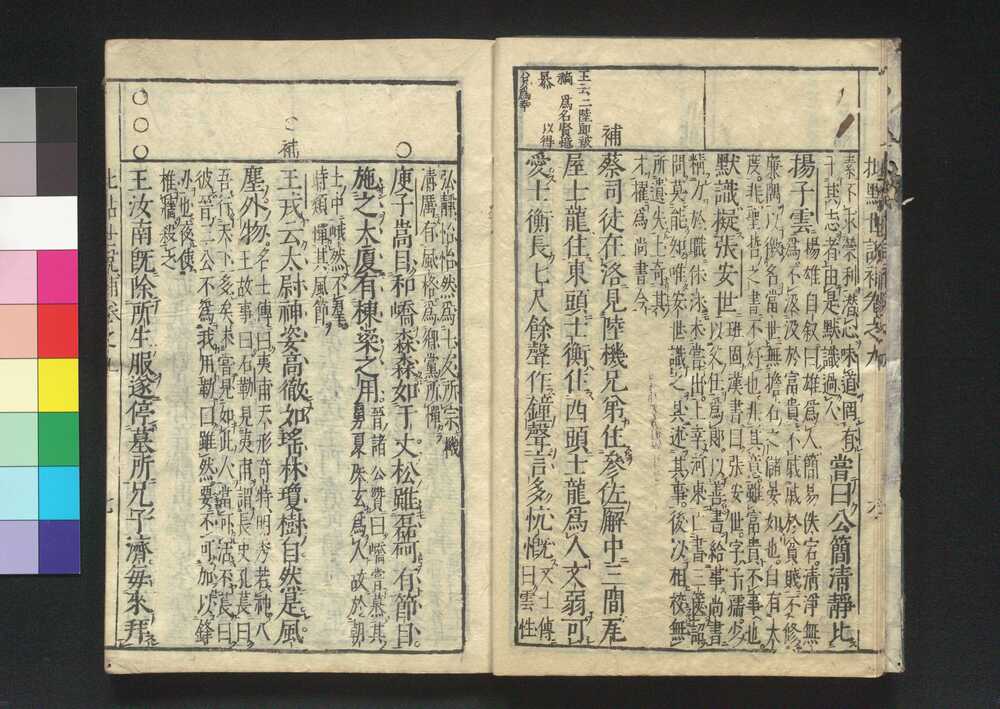 批點世說補卷之九
六
素不求榮利潛心味道罔有
干其志者由是默識過人
嘗曰公簡清靜比
揚子雲
揚雄自叙曰雄爲人簡易佚宕清淨無
爲不汲汲於富貴不戚戚於貧賤不修
廉隅以徼名當世無擔石之儲晏如也自有大
度非聖哲之書不好也非其意雖富貴不事也
默識擬張安世
班固漢書曰張安世字子孺少
以父任爲郎以善書給事尚書
精力於職休沐未嘗出上幸河東亡書三篋詔
問莫能知唯安世識之具述其事後以相校無
所遺失上奇其
才擢爲尚書令
補
蔡司徒在洛見陸機兄弟住參佐廨中三間瓦
屋士龍住東頭士衡住西頭士龍爲人文弱可
王云二陸
愛士衡長七尺餘聲作鐘聲言多忼慨
文士傳
曰雲性
弘靜怡怡然爲士友所宗機
清厲有風格爲鄉黨所憚
○
庾子嵩目和嶠森森如千丈松雖磊砢有節目
施之大廈有棟梁之用
晉諸公贊曰嶠常慕其
舅夏侯玄爲人故於朝
士中峨然不羣
時類憚其風節
○補
王戎云太尉神姿高徹如瑤林瓊樹自然是風
塵外物
名士傳曰夷甫天形奇特明秀若神八
王故事曰石勒見夷甫謂長史孔萇曰
吾行天下多矣未嘗見如此人當可活不萇曰
彼晉三公不爲我用勒曰雖然要不可加以鋒
刃也夜使
推牆殺之
○○○
王汝南既除所生服遂停墓所兄子濟每來拜
批點世說補卷之九
七